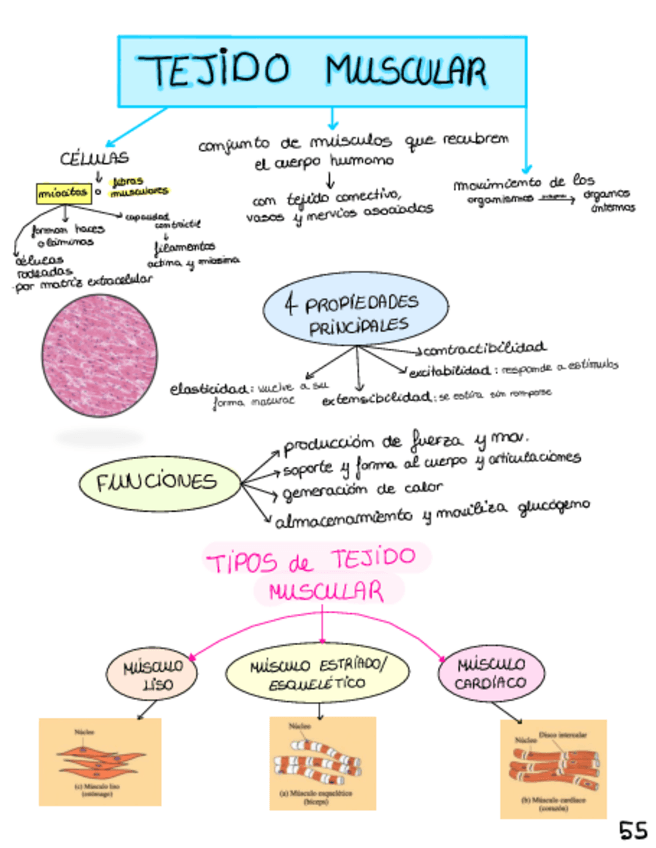 TEJIDO MUSCULAR
CÉLULAS
miocitos o fibras
musculares
forman haces
o láminas
capacidad
contráctil
filamentos
actina y miosina
células
rodeadas
por matriz extracelular
conjunto de músculos que recubren
el cuerpo humano
con tejido conectivo,
vasos y nervios asociados
movimiento de los
organismos
órganos
internos
4 PROPIEDADES
PRINCIPALES
contractibilidad
excitabilidad: responde a estímulos
elasticidad: vuelve a su
forma natural
extensibilidad: se estira sin romperse
FUNCIONES
producción de fuerza y mov.
soporte y forma al cuerpo y articulaciones
generación de calor
almacenamiento y moviliza glucógeno
TIPOS de TEJIDO
MUSCULAR
MÚSCULO
LISO
MÚSCULO ESTRIADO/
ESQUELÉTICO
MÚSCULO
CARDÍACO
Núcleo
(c) Músculo liso
(estómago)
Núcleo
(a) Músculo esquelético
(bíceps)
Disco intercalar
Núcleo
(b) Músculo cardíaco
(corazón)
55